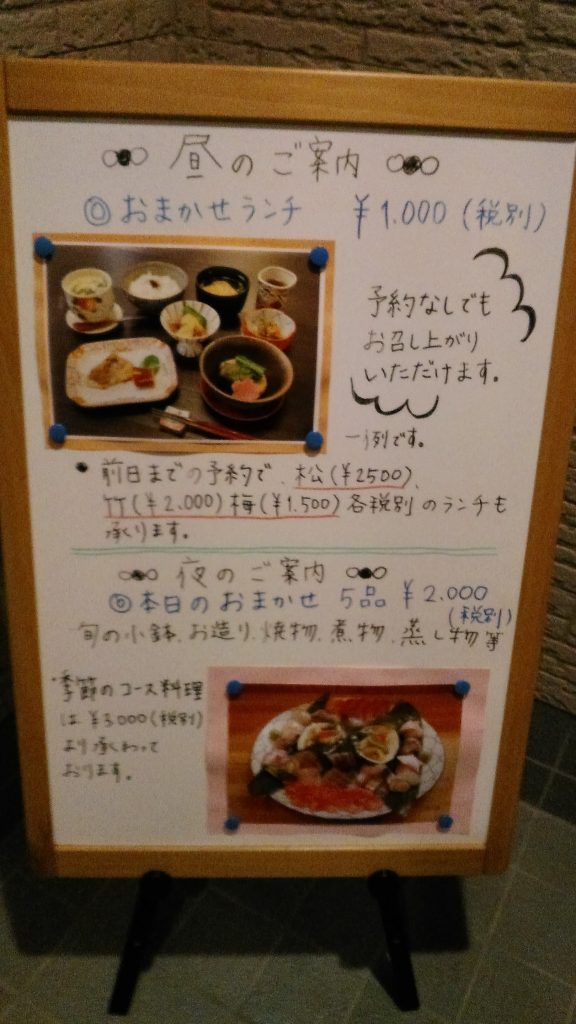 昼のご案内
◎おまかせランチ ¥1.000(税別)
予約なしでも
お召し上がり
いただけます。
一例です。
・前日までの予約で、松(¥2500)、
竹(¥2.000)梅(¥1.500)各税別のランチも
承ります。
夜のご案内
◎本日のおまかせ 5品 ¥2.000
(税別)
旬の小鉢、お造り、焼物、煮物、蒸し物等
・季節のコース料理
は¥3000(税別)
より承わって
おります。